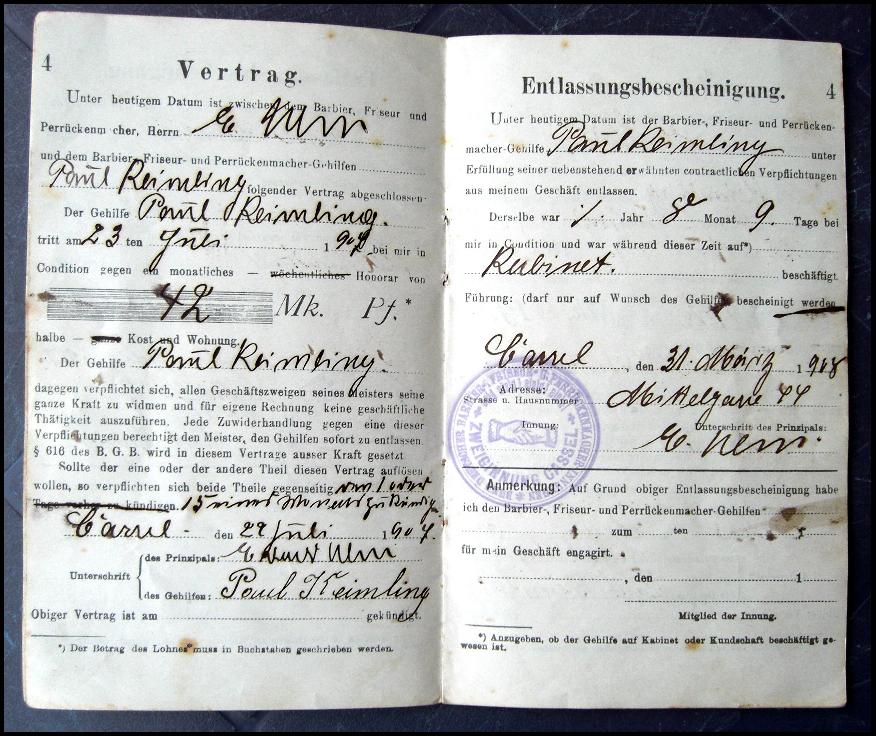 4
Vertrag.
Unter heutigem Datum ist zwischen dem Barbier, Friseur und
Perrückenmacher, Herrn E.
und dem Barbier-, Friseur- und Perrückenmacher-Gehilfen
Paul Reimling folgender Vertrag abgeschlossen.
Der Gehilfe Paul Reimling.
tritt am 23 ten Juli 1907 bei mir in
Condition gegen ein monatliches — wöchentliches Honorar von
42 Mk. Pf.*
halbe — ganze Kost und Wohnung.
Der Gehilfe Paul Reimling.
dagegen verpflichtet sich, allen Geschäftszweigen seines Meisters seine
ganze Kraft zu widmen und für eigene Rechnung keine geschäftliche
Thätigkeit auszuführen. Jede Zuwiderhandlung gegen eine dieser
Verpflichtungen berechtigt den Meister, den Gehilfen sofort zu entlassen.
§ 616 des B. G. B. wird in diesem Vertrage ausser Kraft gesetzt
Sollte der eine oder der andere Theil diesen Vertrag auflösen
wollen, so verpflichten sich beide Theile gegenseitig den 1 oder
Tage vorher zu kündigen. 15 eines Monats zu kündigen
Cassel den 29 Juli 1907.
Unterschrift
des Prinzipals:
des Gehilfen: Paul Reimling
Obiger Vertrag ist am gekündigt.
*) Der Betrag des Lohnes muss in Buchstaben geschrieben werden.
Entlassungsbescheinigung. 4
Unter heutigem Datum ist der Barbier-, Friseur- und Perrücken-
macher-Gehilfe Paul Reimling unter
Erfüllung seiner nebenstehend erwähnten contractlichen Verpflichtungen
aus meinem Geschäft entlassen.
Derselbe war /. Jahr 8 Monat 9. Tage bei
mir in Condition und war während dieser Zeit auf*)
Kabinet. beschäftigt.
Führung: (darf nur auf Wunsch des Gehilfen bescheinigt werden
Cassel, den 31. März 1908
Adresse:
Strasse u. Hausnummer Mittelgasse 44
Innung: Unterschrift des Prinzipals:
E.
ZWEIGINNUNG CASSEL
Anmerkung: Auf Grund obiger Entlassungsbescheinigung habe
ich den Barbier-, Friseur- und Perrückenmacher-Gehilfen
zum ten 1
für mein Geschäft engagirt.
, den 1
Mitglied der Innung.
*) Anzugeben, ob der Gehilfe auf Kabinet oder Kundschaft beschäftigt ge-
wesen ist.